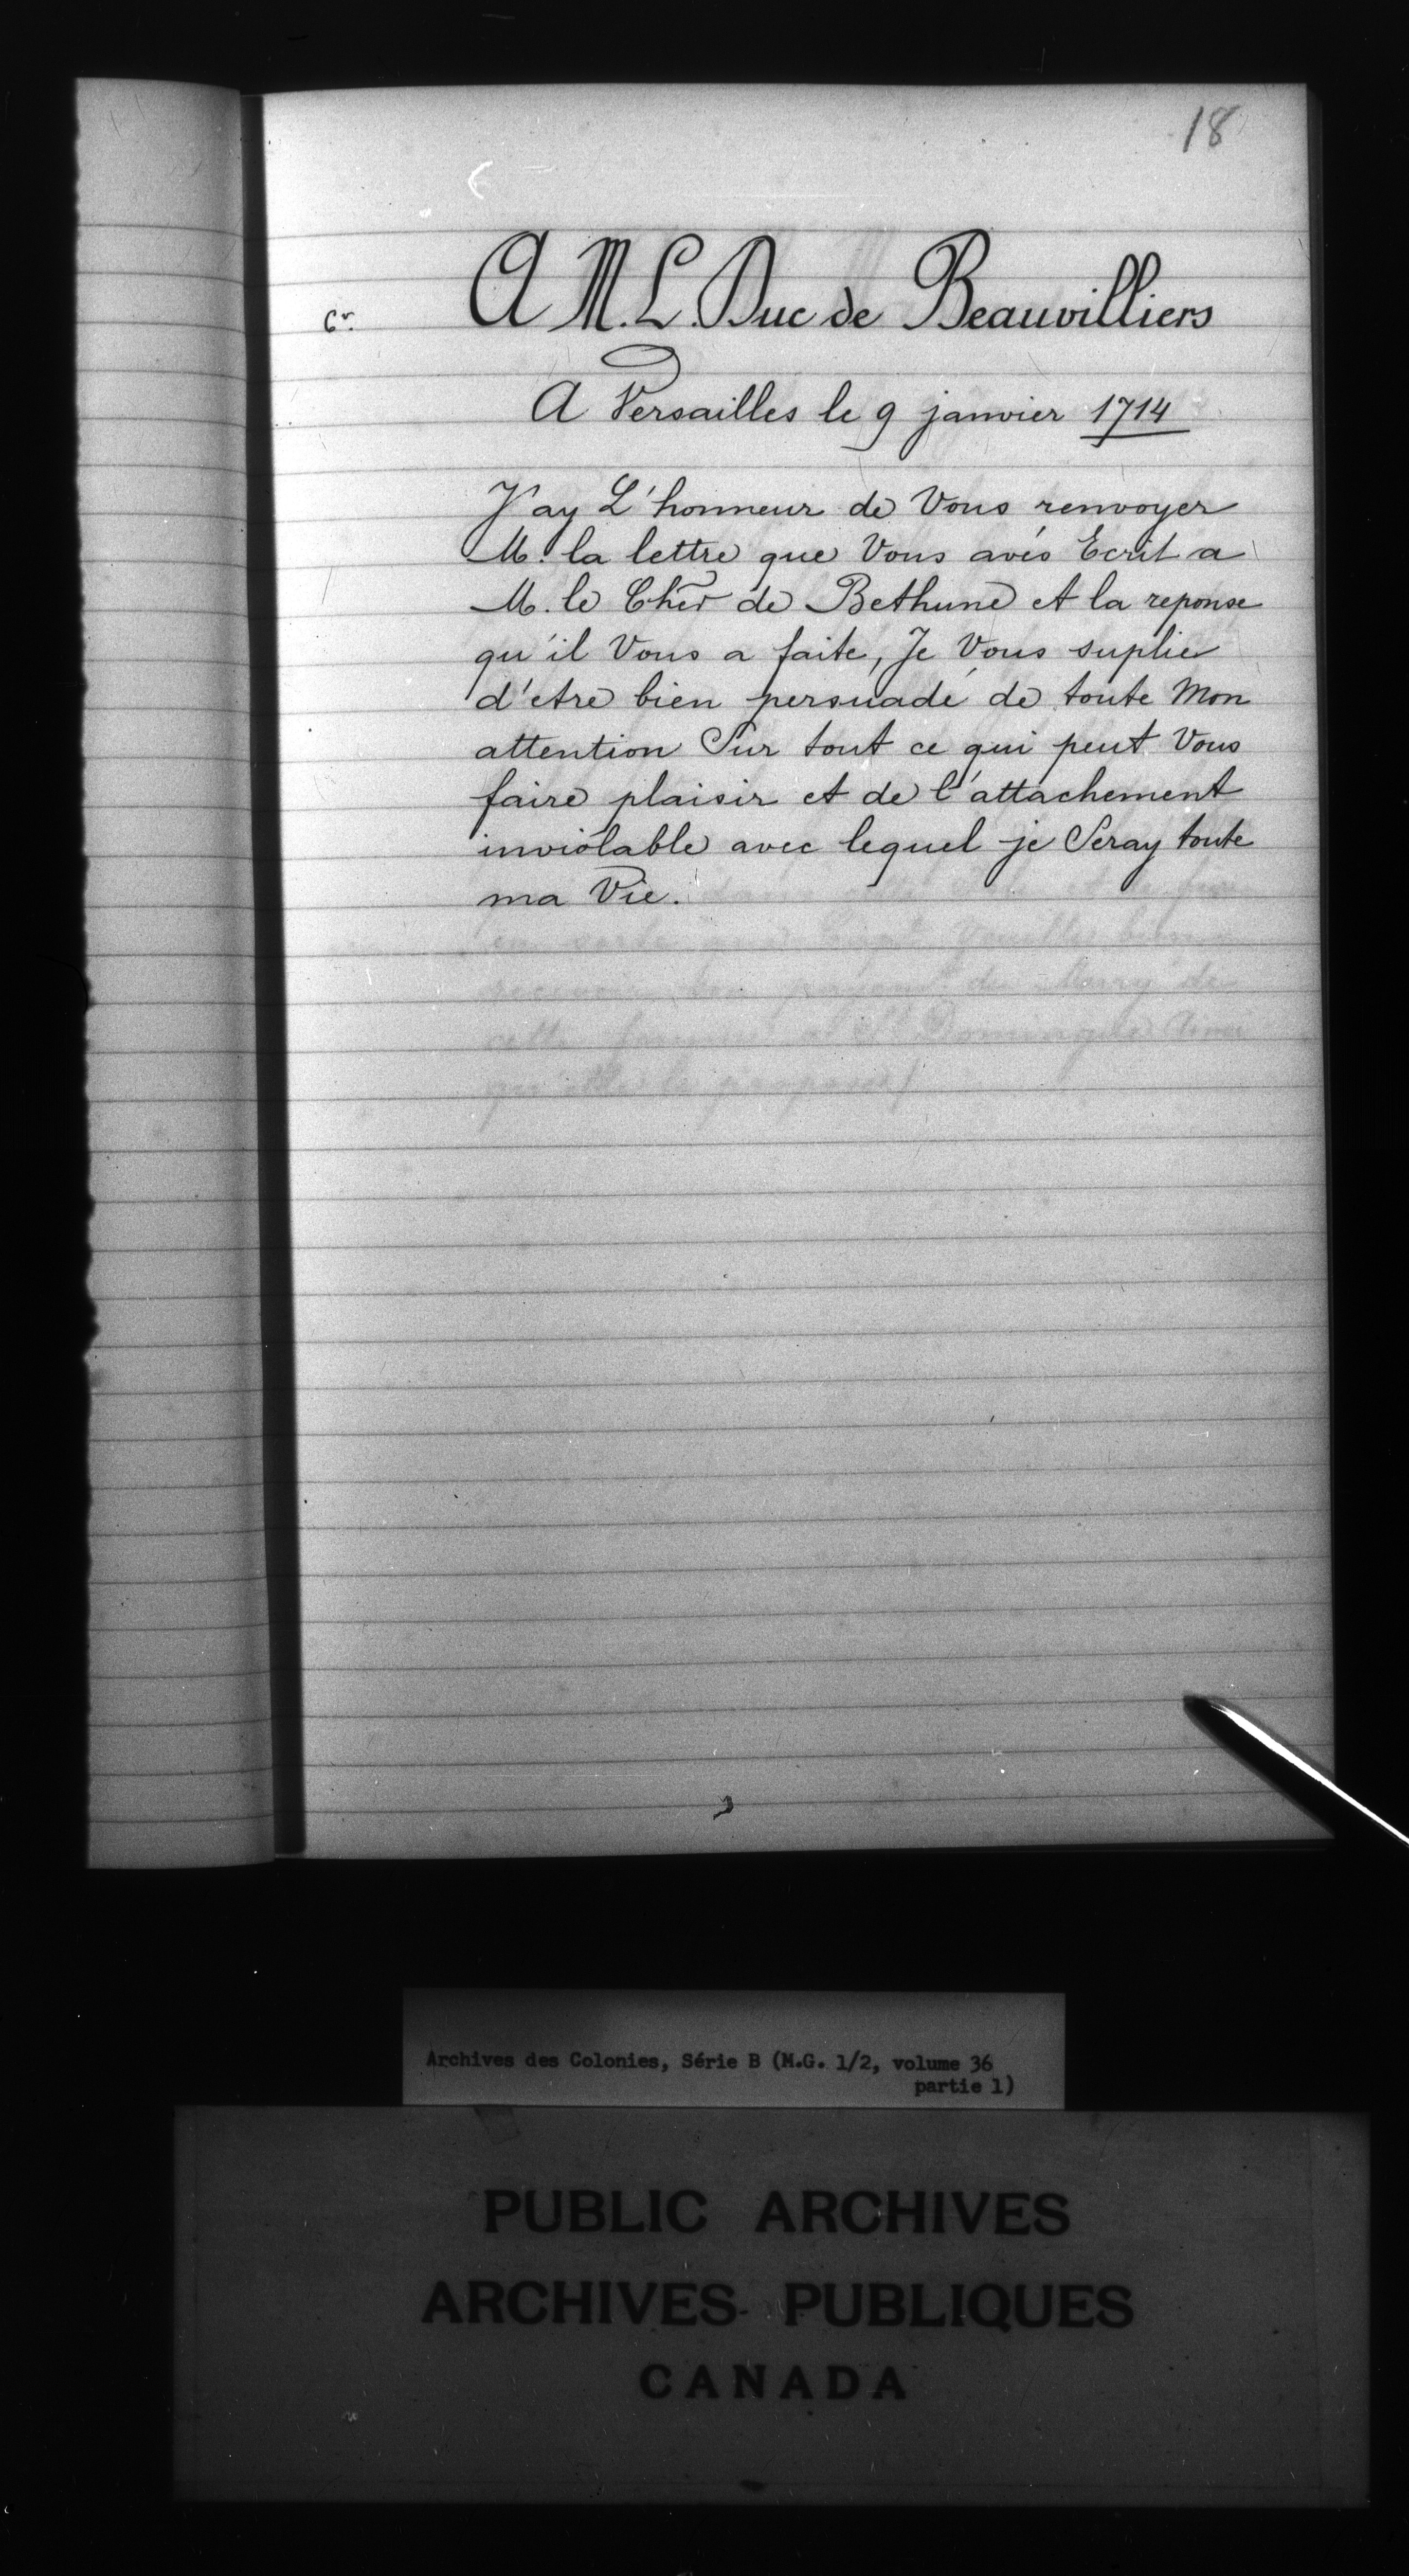 18
6v.
A M. L. Duc de Beauvilliers
A Versailles le 9 janvier 1714
J'ay L'honneur de Vous renvoyer
M. la lettre que Vous avés Ecrit a
M. le Cher de Bethune et la reponse
qu'il Vous a faite, Je Vous suplie
d'etre bien persuadé de toute Mon
attention Sur tout ce qui peut Vous
faire plaisir et de l'attachement
inviolable avec lequel je Seray toute
ma Vie.
Archives des Colonies, Série B (M.G. 1/2, volume 36
partie 1)
PUBLIC ARCHIVES
ARCHIVES PUBLIQUES
CANADA